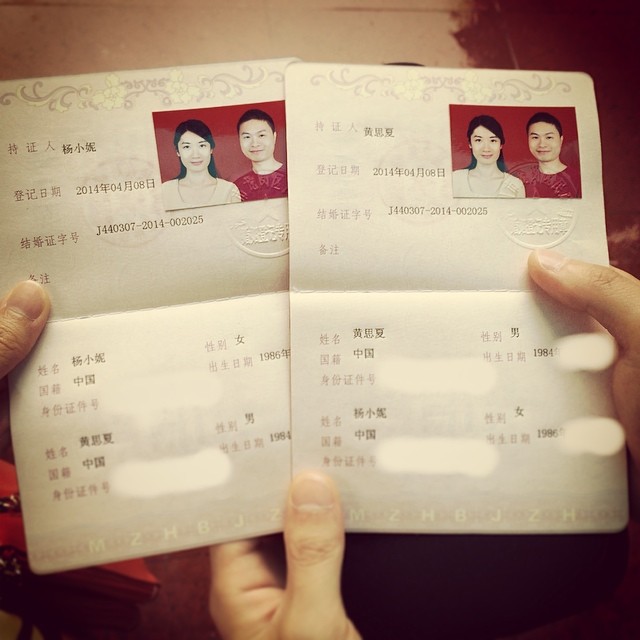 持证人 杨小妮
登记日期 2014年04月08日
结婚证字号 J440307-2014-002025
备注
姓名 杨小妮 性别 女
国籍 中国 出生日期 1986年
身份证件号
姓名 黄思夏 性别 男
国籍 中国 出生日期 1984
身份证件号
M Z H B J Z
持证人 黄思夏
登记日期 2014年04月08日
结婚证字号 J440307-2014-002025
备注
姓名 黄思夏 性别 男
国籍 中国 出生日期 1984
身份证件号
姓名 杨小妮 性别 女
国籍 中国 出生日期 1986
身份证件号
M Z H B J Z H